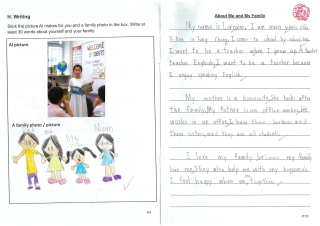 H. Writing
Stick the picture AI makes for you and a family photo in the box. Write at
least 30 words about yourself and your family.
AI picture
WELCOME
STUDENTS
A family photo / picture
me
Mom
About Me and My Family
My name is I am seven years
live in Tung Chung. I come to school by school bus.
I want to be a teacher when I grow up. A teacher
teaches English. I want to be a teacher because
I enjoy speaking English.
My mother is a housewife. She looks after
the family. My father is an office worker. He
works in an office. I have three brothers and
three sisters, and they are all students.
I love my family because my family
love me. They also help me with my homework.
I feel happy when we together.